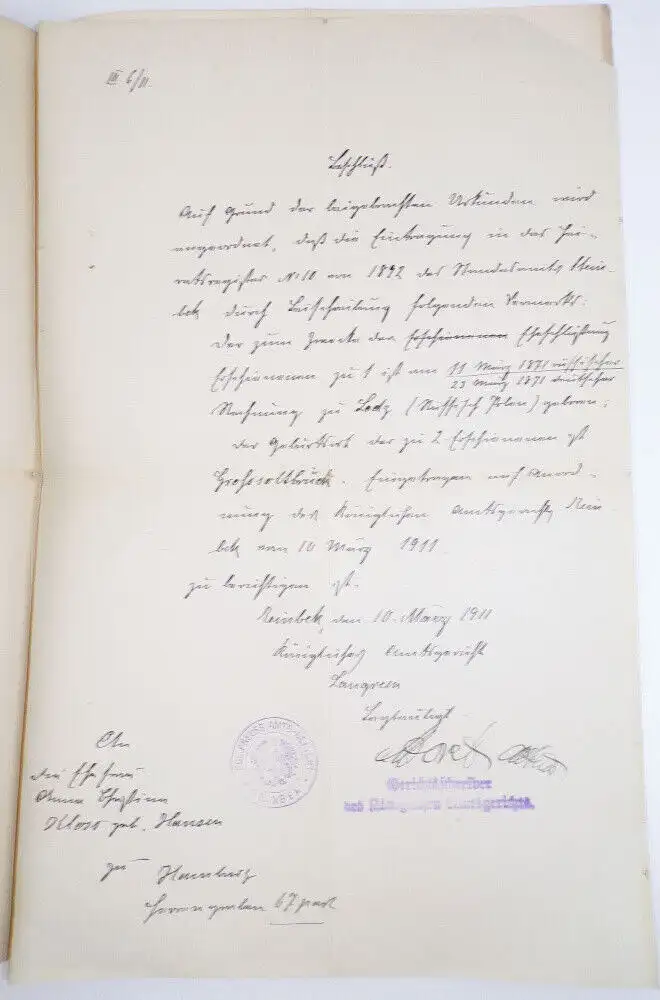 III 6/11.
Beschluß.
Auf Grund der beigebrachten Urkunden wird
angeordnet, daß die Eintragung in das Hei-
ratsregister No 10 von 1892 des Standesamts Rein-
bek durch Beischreibung folgenden Vermerks:
Der zum Zwecke der Erschienenen Eheschließung
Erschienenen zu 1 ist am 11 März 1871 russischer
23 März 1871 deutscher
Rechnung zu Lodz (Russisch Polen) geboren;
der Geburtsort der zu 2 Erschienenen ist
Grosssoltbrück. Eingetragen auf Anord-
nung des Königlichen Amtsgerichts Rein-
bek vom 10 März 1911
zu berichtigen ist.
Reinbek, den 10. März 1911
Königliches Amtsgericht
Beglaubigt
KÖNIGLICHES AMTSGERICHT
REINBEK
Gerichtsschreiber
des Königlichen Amtsgerichts.
An
die Ehefrau
Anna Christine
geb. Hansen
zu Hamburg
Herrengraben 67 part